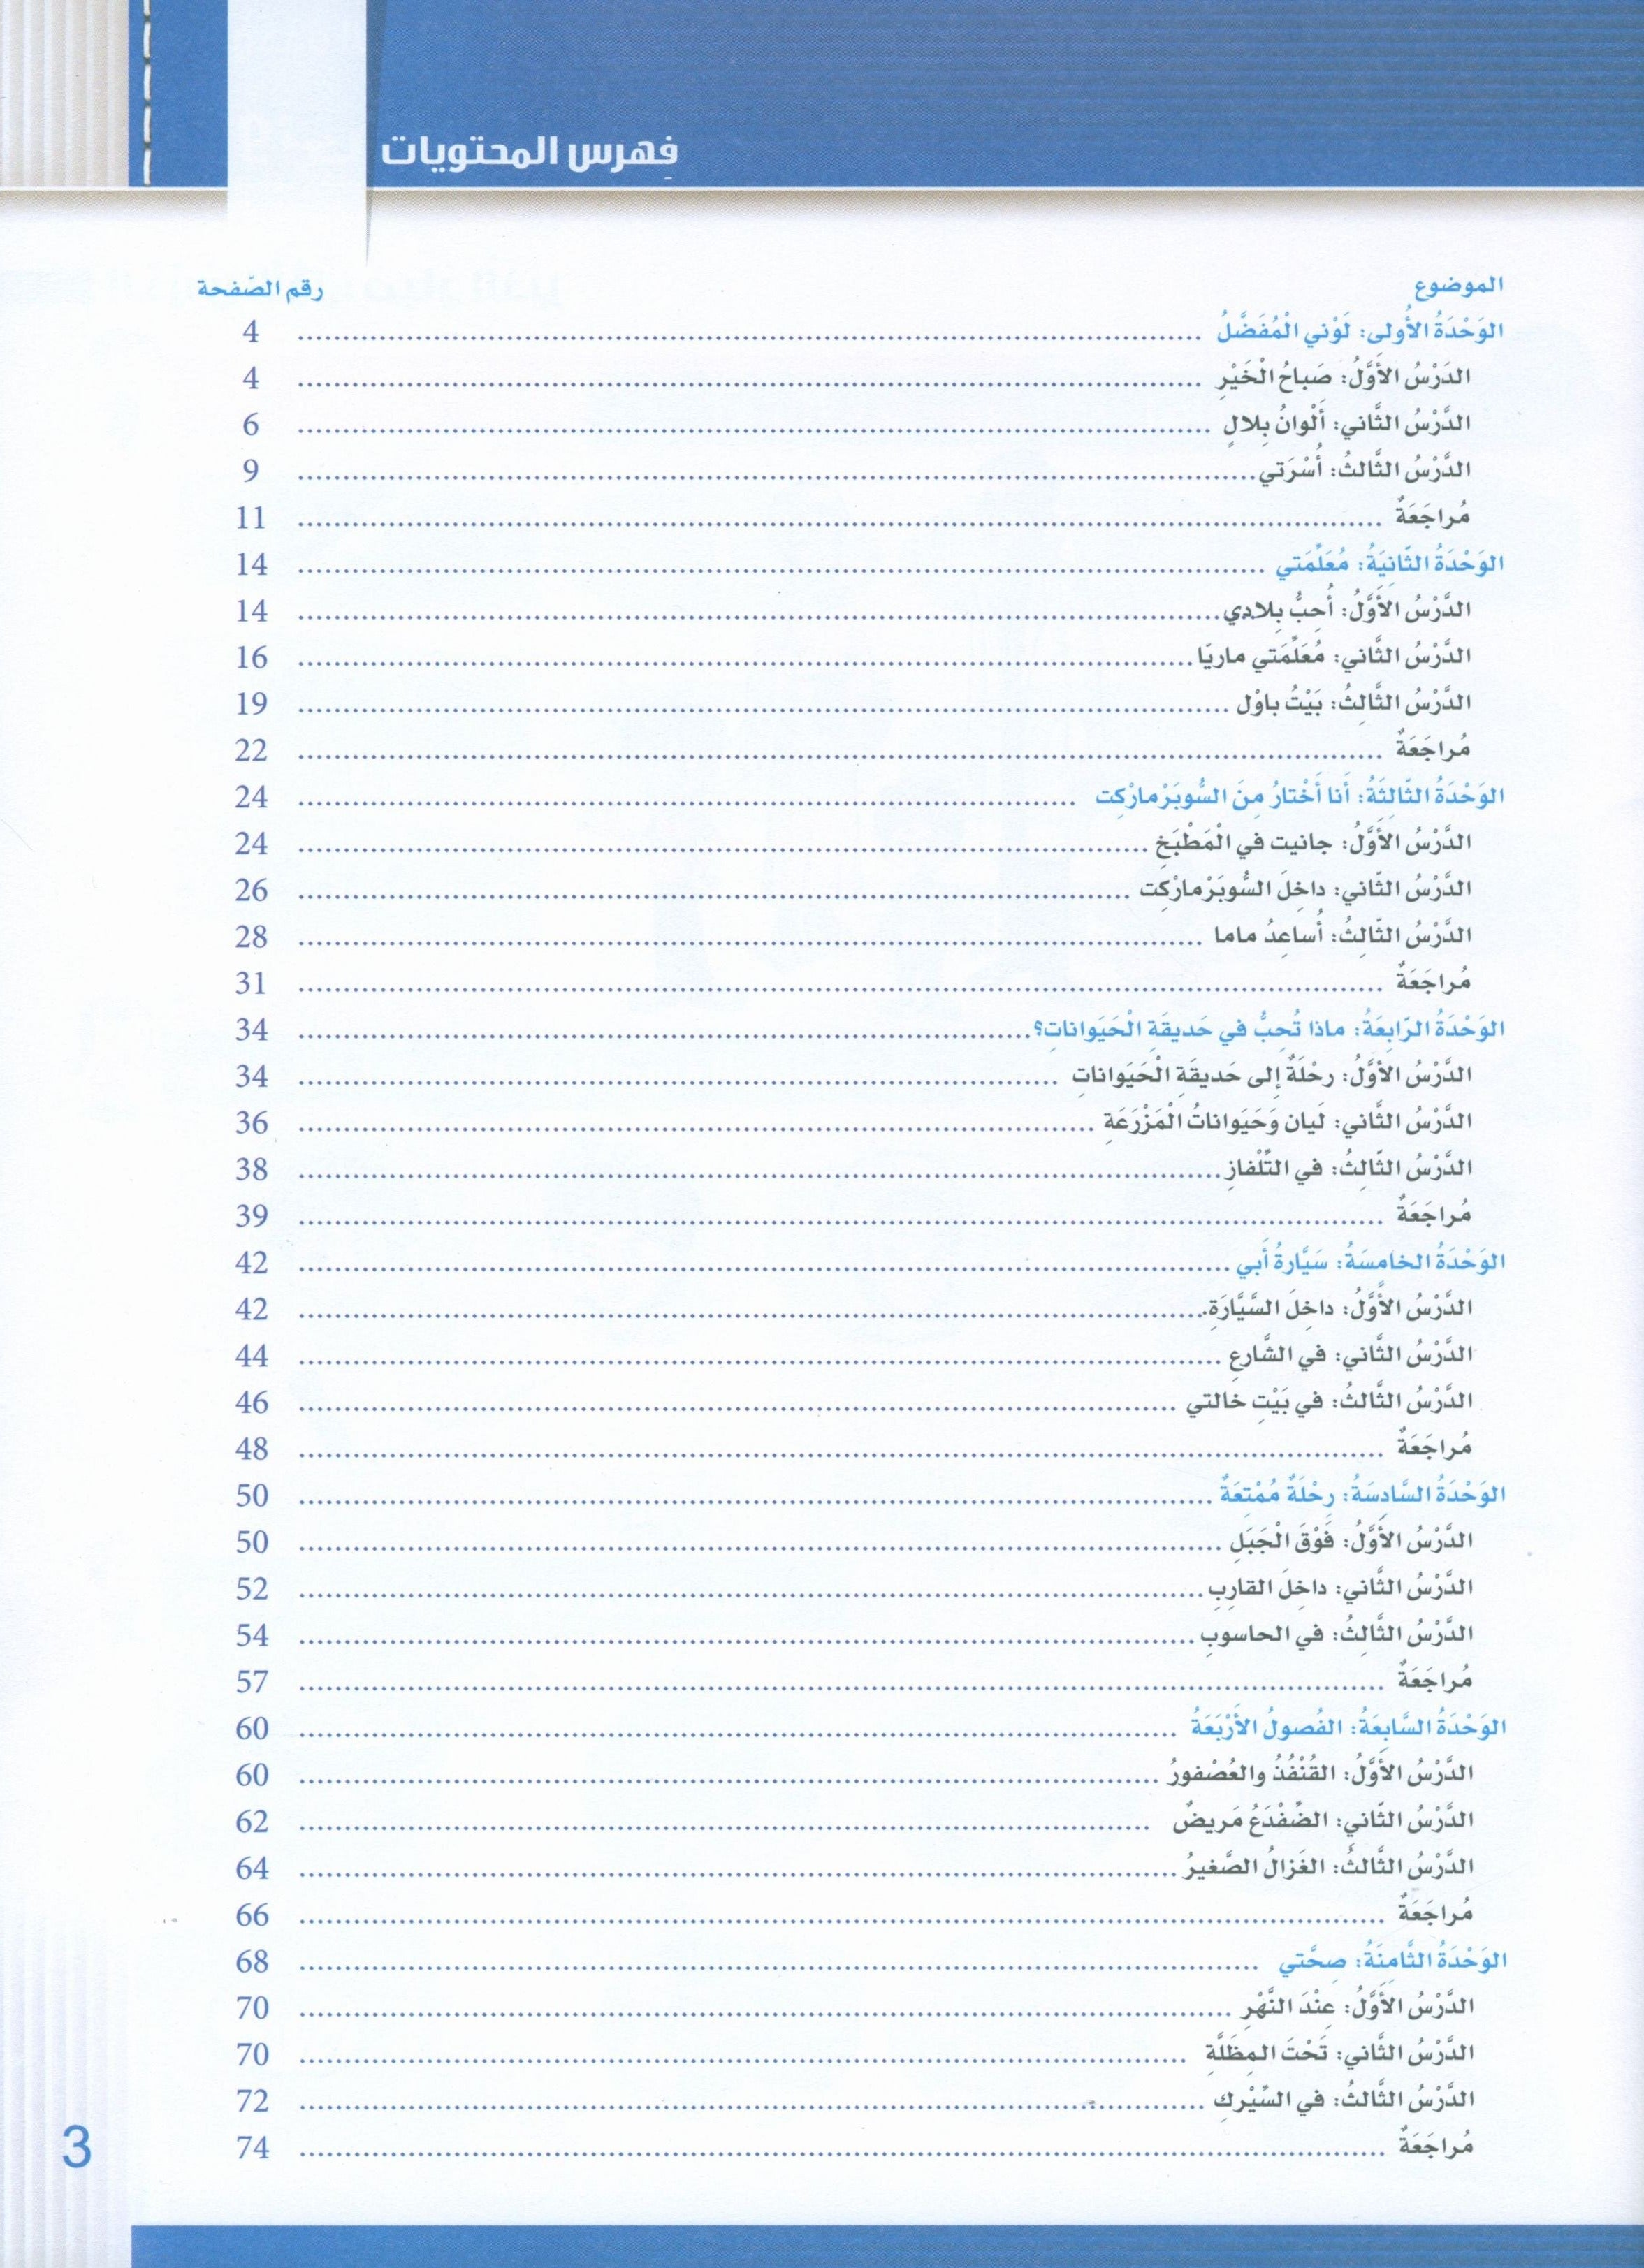 فِهرس المحتويات
الموضوع رقم الصّفحة
الوَحْدَةُ الأُولى: لَوْني الْمُفَضَّلُ 4
الدَرْسُ الأَوَّلُ: صَباحُ الْخَيْرِ 4
الدَّرْسُ الثَّاني: أَلْوانُ بِلالٍ 6
الدَّرْسُ الثَّالثُ: أُسْرَتي 9
مُراجَعَةٌ 11
الوَحْدَةُ الثّانِيَةُ: مُعَلِّمَتي 14
الدَّرْسُ الأَوَّلُ: أُحِبُّ بِلادي 14
الدَّرْسُ الثَّاني: مُعَلِّمَتي ماريّا 16
الدَّرْسُ الثَّالِثُ: بَيْتُ باوْل 19
مُراجَعَةٌ 22
الوَحْدَةُ الثّالِثَةُ: أَنا أَخْتارُ مِنَ السُّوبَرْمارْكِت 24
الدَّرْسُ الأَوَّلُ: جانيت في الْمَطْبَخِ 24
الدَّرْسُ الثّاني: داخِلَ السُّوبَرْمارْكِت 26
الدَّرْسُ الثّالِثُ: أُساعِدُ ماما 28
مُراجَعَةٌ 31
الوَحْدَةُ الرّابِعَةُ: ماذا تُحِبُّ في حَديقَةِ الْحَيَوانات؟ 34
الدَّرْسُ الأوَّلُ: رِحْلَةٌ إلى حَديقَةِ الْحَيَواناتِ 34
الدَّرْسُ الثَّاني: لَيان وَحَيَواناتُ الْمَزْرَعَةِ 36
الدَّرْسُ الثّالِثُ: في التِّلْفازِ 38
مُراجَعَةٌ 39
الوَحْدَةُ الخامِسَةُ: سَيَّارةُ أَبي 42
الدَّرْسُ الأَوَّلُ: داخِلَ السَّيَّارَةِ 42
الدَّرْسُ الثَّاني: في الشَّارعِ 44
الدَّرْسُ الثَّالثُ: في بَيْتِ خالتي 46
مُراجَعَةٌ 48
الوَحْدَةُ السَّادِسَةُ: رِحْلَةٌ مُمْتِعَةٌ 50
الدَّرْسُ الأَوَّلُ: فَوْقَ الْجَبَلِ 50
الدَّرْسُ الثَّاني: داخِلَ القارِبِ 52
الدَّرْسُ الثَّالِثُ: في الحاسوبِ 54
مُراجَعَةٌ 57
الوَحْدَةُ السَّابِعَةُ: الفُصولُ الأَرْبَعَةُ 60
الدَّرْسُ الأَوَّلُ: القُنْفُذُ والعُصْفورُ 60
الدَّرْسُ الثّاني: الضِّفْدَعُ مَريضٌ 62
الدَّرْسُ الثَّالثُ: الغَزالُ الصَّغيرُ 64
مُراجَعَةٌ 66
الوَحْدَةُ الثَّامِنَةُ: صِحَّتي 68
الدَّرْسُ الأَوَّلُ: عِنْدَ النَّهْرِ 70
الدَّرْسُ الثَّاني: تَحْتَ المِظَلَّةِ 70
الدَّرْسُ الثَّالثُ: في السِّيْركِ 72
مُراجَعَةٌ 74
3